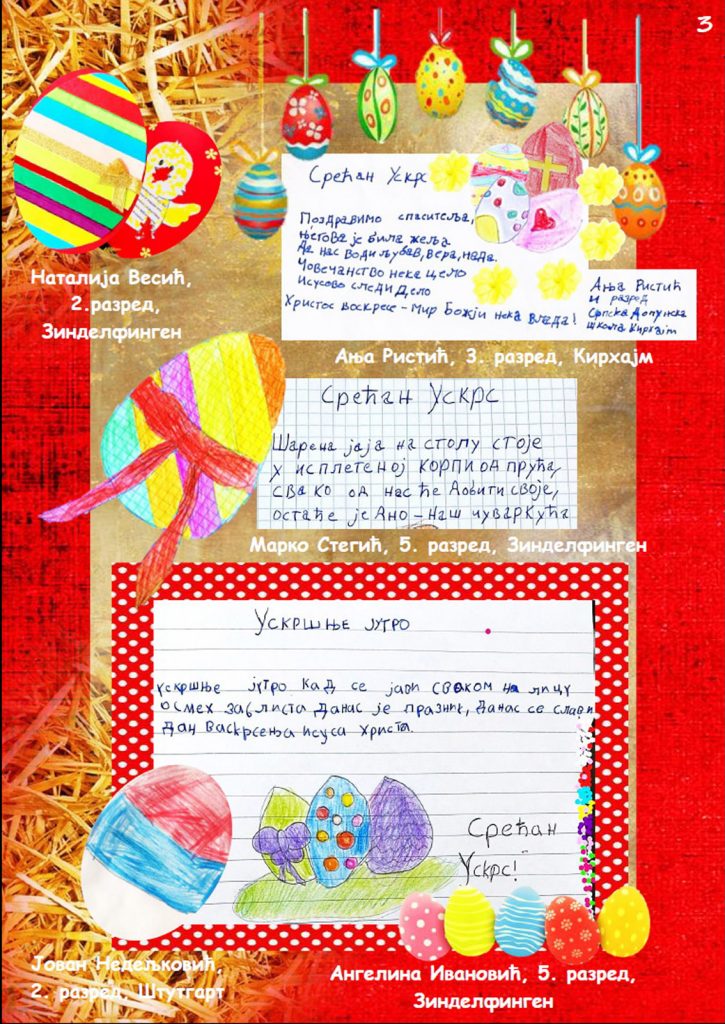 3
Наталија Весић,
2.разред,
Зинделфинген
Срећан Ускрс
Поздравимо спаситеља,
његова је била жеља
Да нас води љубав, вера, нада.
Човечанство нека цело
Исусово следи Дело
Христос воскресе - Мир Божји нека влада!
Ања Ристић
III разред
Српска Допунска
школа Кирхајм
Ања Ристић, 3. разред, Кирхајм
Срећан Ускрс
Шарена јаја на столу стоје
у исплетеној корпи од прућа,
свако од нас ће добити своје,
остаће једно - наш чуваркућа
Марко Стегић, 5. разред, Зинделфинген
Ускршње јутро
ускршње јутро кад се јави сваком на лицу
осмех заблиста данас је празник, данас се слави
дан васкрсења исуса христа.
Срећан
Ускрс!
Јован Недељковић,
2. разред, Штутгарт
Ангелина Ивановић, 5. разред,
Зинделфинген